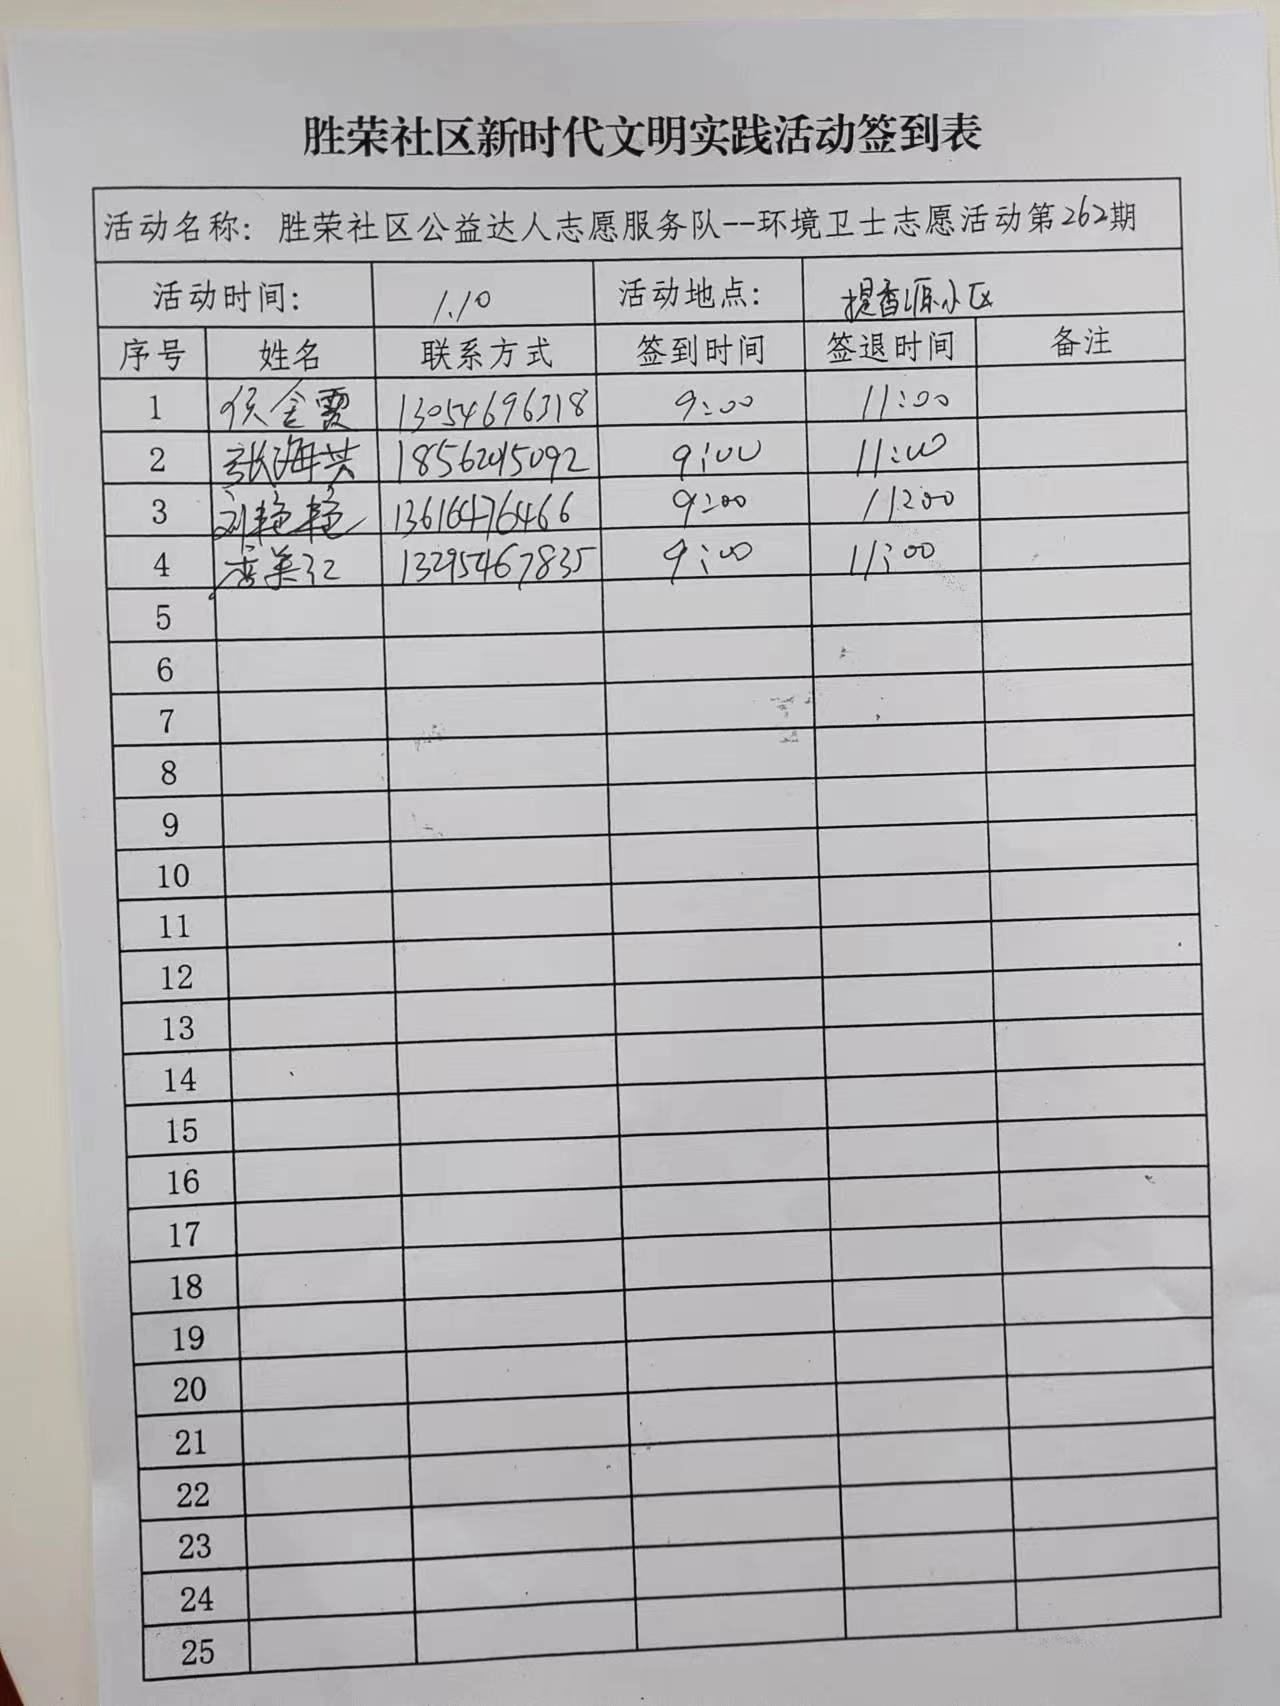 胜荣社区新时代文明实践活动签到表
活动名称：胜荣社区公益达人志愿服务队--环境卫士志愿活动第262期
活动时间： 1.10 活动地点： 提香源小区
序号 姓名 联系方式 签到时间 签退时间 备注
1 侯金霞 13054696318 9:00 11:00
2 张海英 18562015092 9:00 11:00
3 刘艳艳 13616476466 9:00 11:00
4 美红 13295467835 9:00 11:00
5
6
7
8
9
10
11
12
13
14
15
16
17
18
19
20
21
22
23
24
25